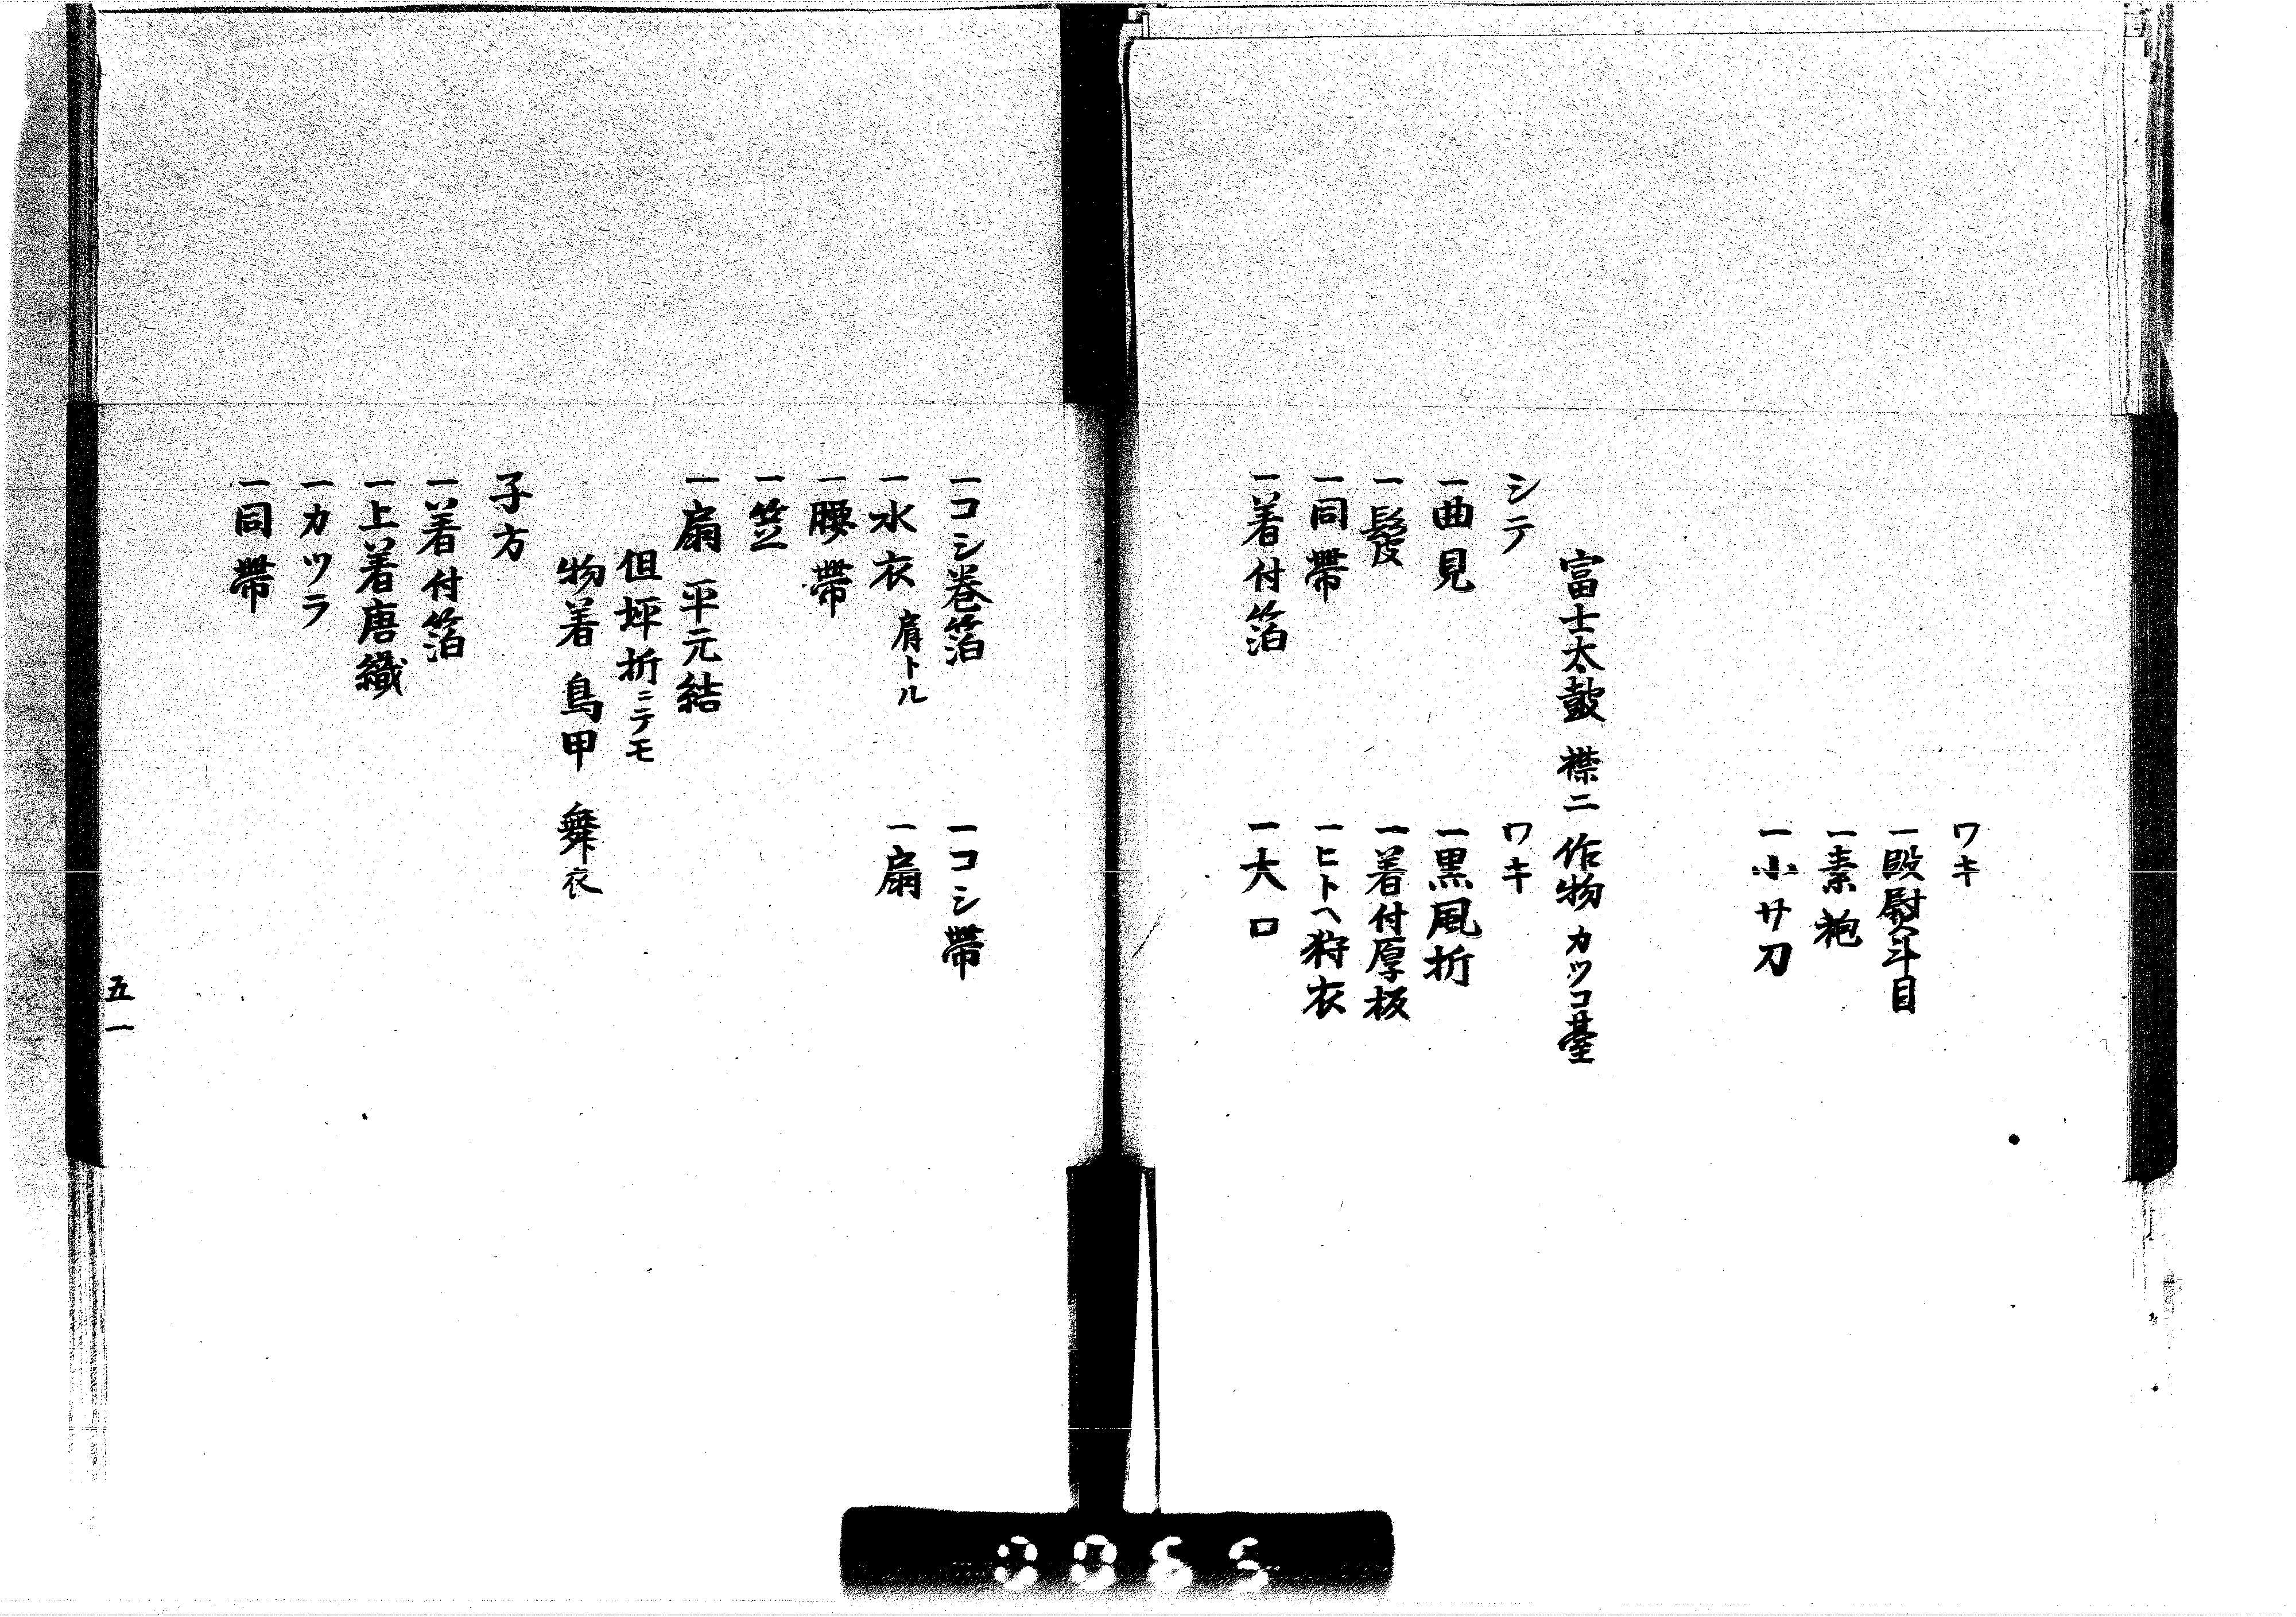 ワキ
一段熨斗目
一素袍
一小サ刀
富士太鼓 襟二 作物 カツコ臺
シテ
一曲見
一鬘
一同帶
一着付箔
ワキ
一黒風折
一着付厚板
一ヒトヘ狩衣
一大口
一コシ巻箔
一水衣 肩トル
一腰帶
一笠
一扇 平元結
但坪折ニテモ
物着 鳥甲 舞衣
一コシ帶
一扇
子方
一着付箔
一上着唐織
一カツラ
一同帶
五一